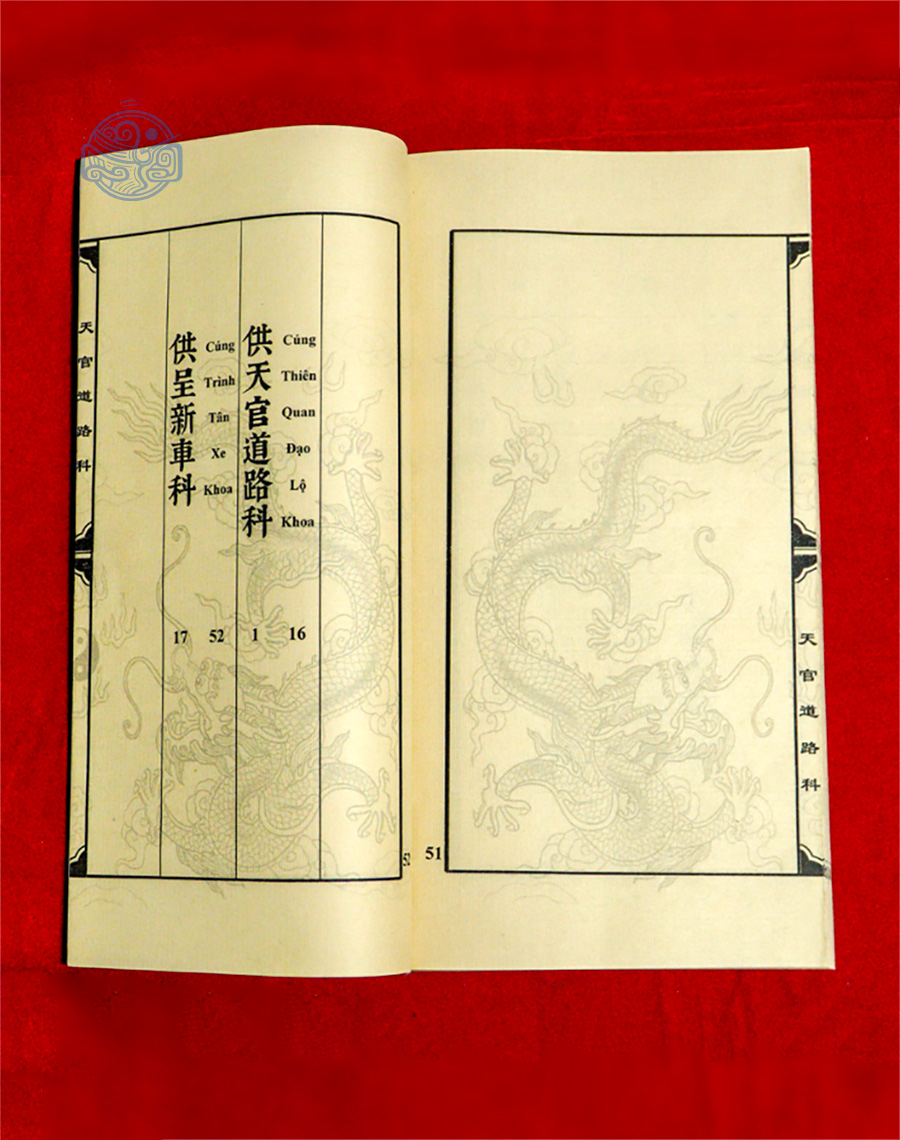 天官道路科
51
Cúng Thiên Quan Đạo Lộ Khoa
供天官道路科
16
1
Cúng Trình Tân Xe Khoa
供呈新車科
52
17
天官道路科
52